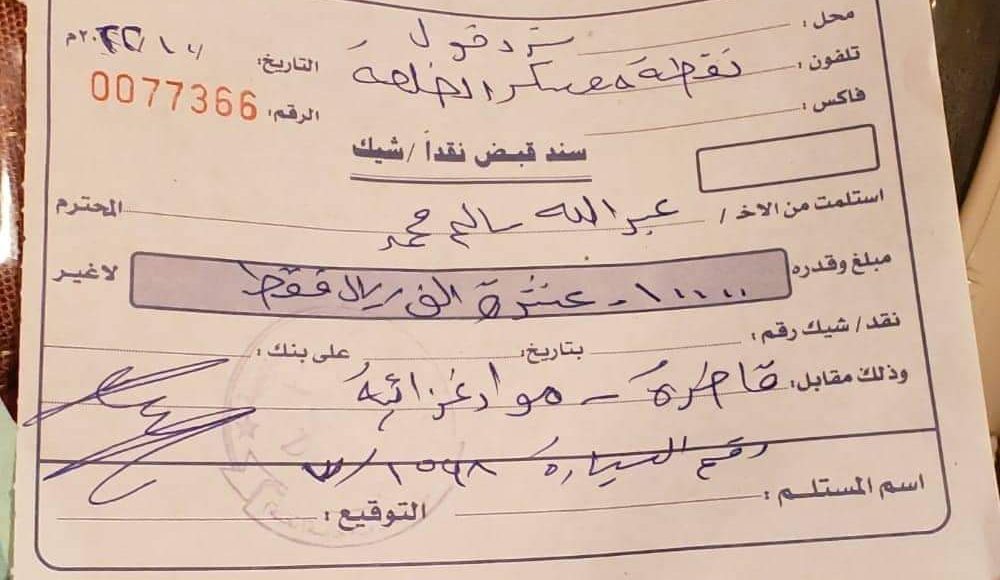 محل:
تلفون: نقطة معسكر الخلعة
فاكس:
التاريخ: ٢٠٢٢/١٠/ م
الرقم: 0077366
سند قبض نقداً / شيك
استلمت من الاخ / عبدالله سالم محمد المحترم
مبلغ وقدره ١٠٠٠٠ - عشرة الف ريال فقط لاغير
نقد / شيك رقم: بتاريخ: على بنك:
وذلك مقابل: قاطرة - مواد غذائية
رقم السيارة
اسم المستلم: التوقيع: